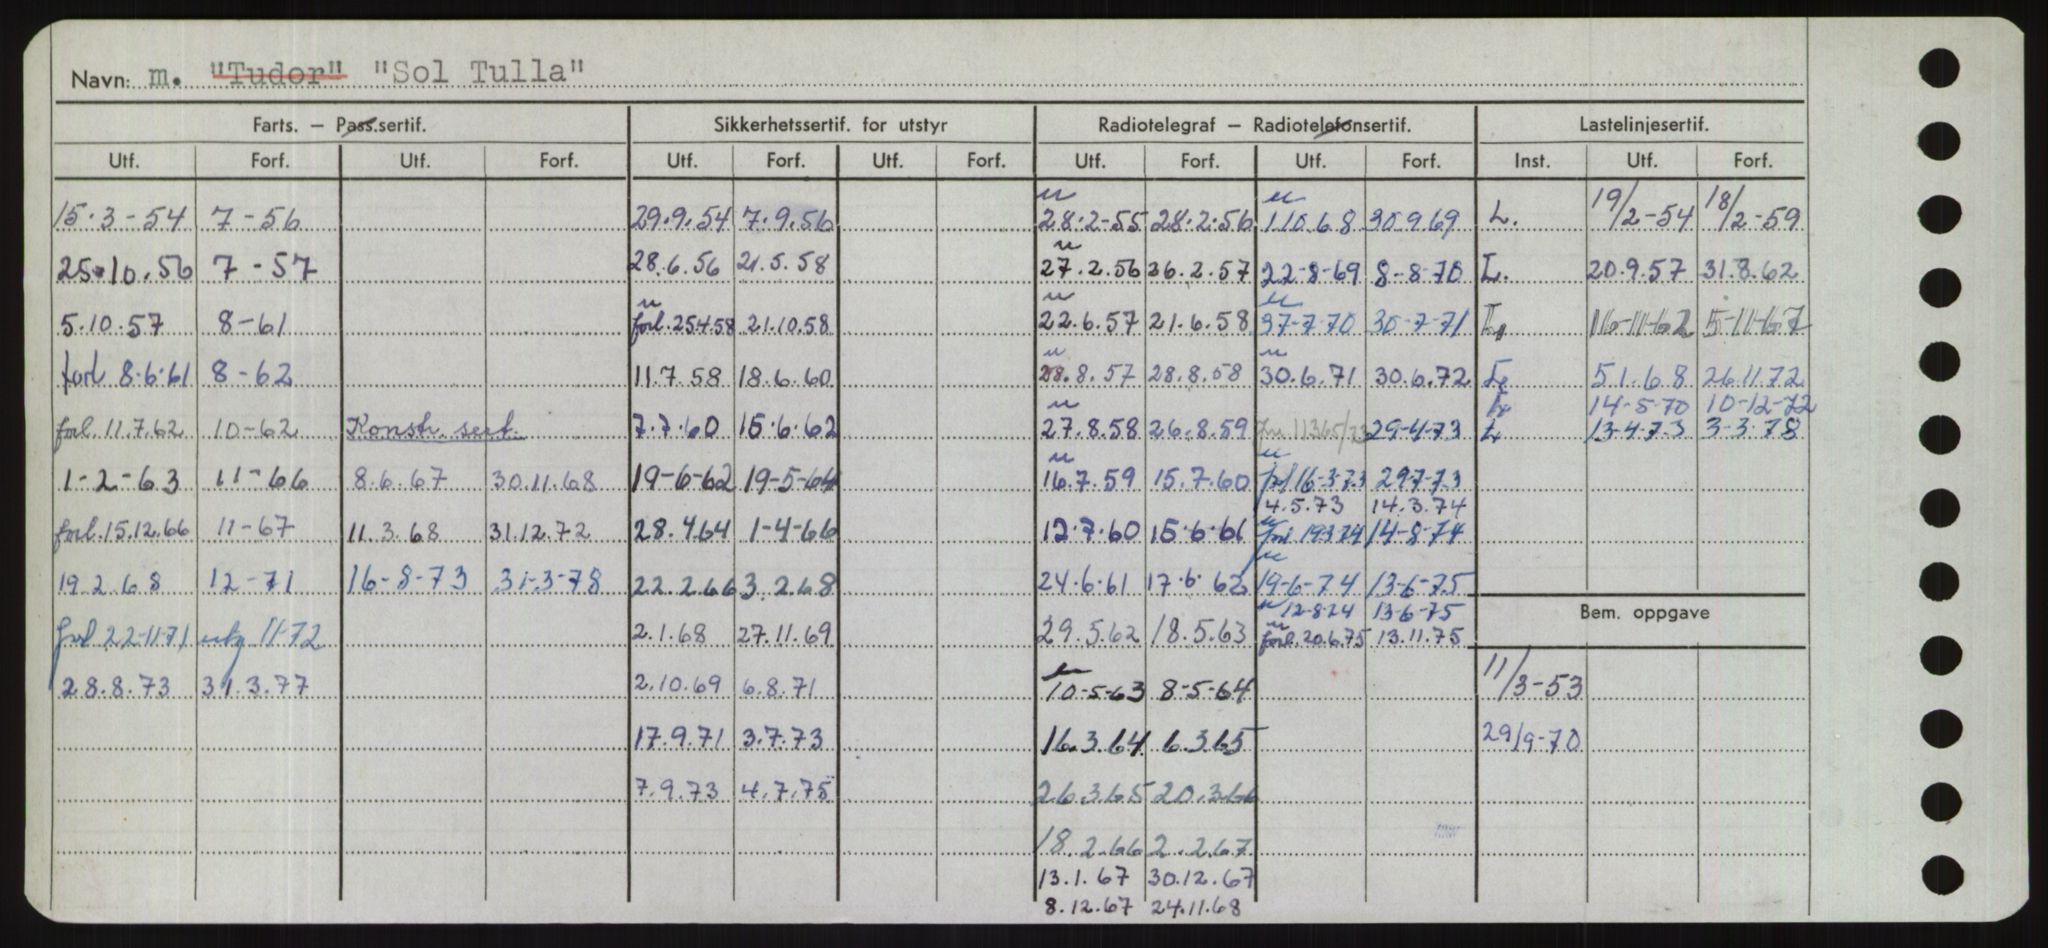 Navn: m. "Tudor" "Sol Tulla"
Farts. – Pass.sertif. Sikkerhetssertif. for utstyr Radiotelegraf – Radiotelefonsertif. Lastelinjesertif.
Utf. Forf. Utf. Forf. Utf. Forf. Utf. Forf. Utf. Forf. Utf. Forf. Inst. Utf. Forf.
15.3-54 7-56 29.9.54 7.9.56 28.2-55 28.2.56 1.10.68 30.9.69 L. 19/2-54 18/2-59
25.10.56 7-57 28.6.56 21.5.58 27.2.56 26.2.57 22-8-69 8-8-70 L. 20.9.57 31.8.62
5.10.57 8-61 forl. 25.4.58 21.10.58 22.6.57 21.6.58 37-7-70 30-7-71 L. 16-11-62 5-11-67
forl 8.6.61 8-62 11.7.58 18.6.60 28.8.57 28.8.58 30.6.71 30.6.72 L 5.1.68 26.11.72
L 14-5-70 10-12-72
forl. 11.7.62 10-62 Konstr. sert. 7.7.60 15.6.62 27.8.58 26.8.59 29-4-73 L 13-4-73 3-3-78
1-2-63 11-66 8.6.67 30.11.68 19-6-62 19-5-64 16.7.59 15.7.60 forl 16-3-73 29-7-73
4.5.73 14.3.74
forl. 15.12.66 11-67 11.3.68 31.12.72 28.4.64 1-4-66 12.7.60 15.6.61 19.3.74 14-8-74
19.2.68 12-71 16-8-73 31-3-78 22.2.66 3.2.68 24.6.61 17.6.62 19-6-74 13-6-75
12-8-74 13-6-75 Bem. oppgave
forl 22-11-71 utg 11-72 2.1.68 27.11.69 29.5.62 18.5.63 forl. 20.6.75 13.11.75
28.8.73 31.3.77 2.10.69 6.8.71 10-5-63 8-5-64 11/3-53
17.9.71 3.7.73 16.3.64 6.3.65 29/9-70
7.9.73 4.7.75 26.3.65 20.3.66
18.2.66 2.2.67
13.1.67 30.12.67
8.12.67 24.11.68